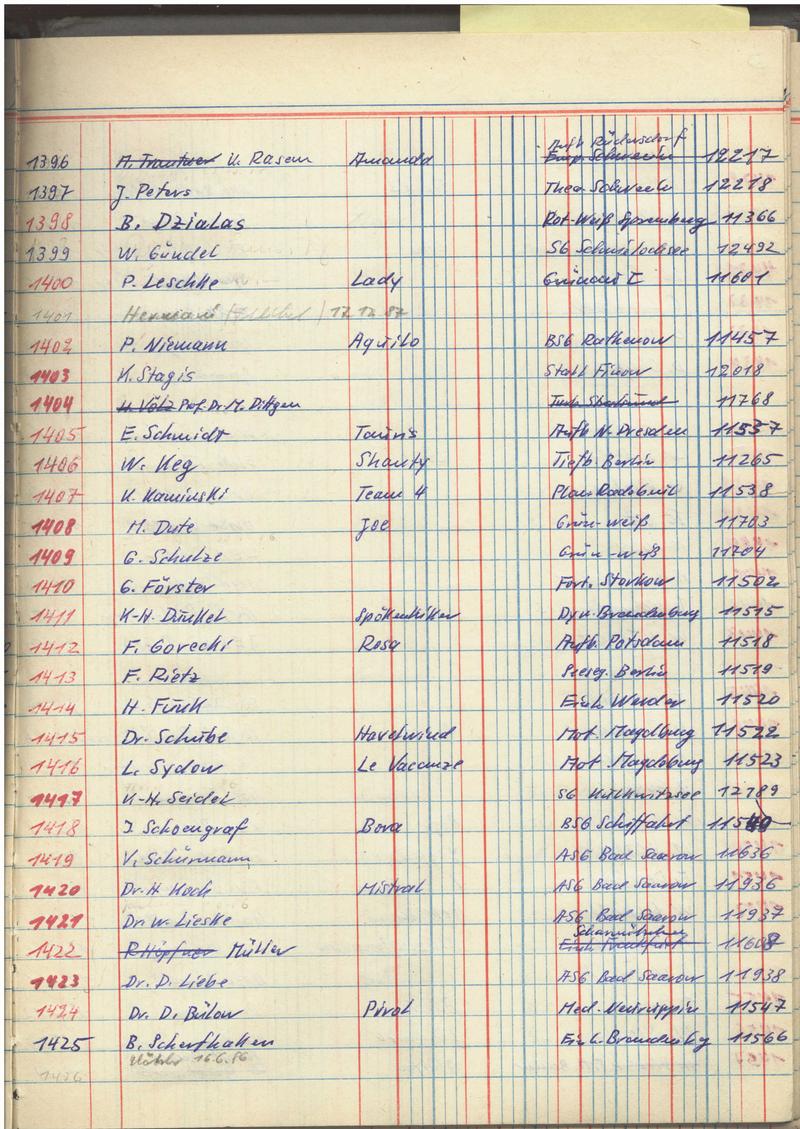 Aufb Rüdersdorf
1396 A. Trautner U. Rasem Amanda 12217
1397 J. Peters 12218
1398 B. Dzialas Rot-Weiß 11366
1399 W. Gündel SG 12492
1400 P. Leschke Lady Grünau I 11601
1401 Hermann 17.12.87
1402 P. Niemann Aquilo BSG Rathenow 11457
1403 K. Stagis Stahl Finow 12018
1404 U. Völz Prof. Dr. M. Dittgen 11768
1405 E. Schmidt Touris Aufb N. Dresden 11537
1406 W. Keg Shanty Tiefb. Berlin 11265
1407 K. Kaminski Team 4 Plan. Radebeul 11538
1408 M. Dute Joe Grün-weiß 11703
1409 G. Schulze Grün-weiß 11704
1410 G. Förster Fort. Storkow 11502
1411 K-H. Dunkel Spökenkiker Dyn. Brandenburg 11515
1412 F. Gorecki Rosa Aufb. Potsdam 11518
1413 F. Rietz Berlin 11519
1414 H. Funk Einh. Werder 11520
1415 Dr. Schube Havelwind Mot. Magdburg 11522
1416 L. Sydow Le Vacanze Mot. Magdburg 11523
1417 K-H. Seidel SG Kulkwitzsee 12789
1418 J. Schoengraf Bora BSG Schiffahrt
1419 V. Schürmann ASG Bad Saarow 11636
1420 Dr. H. Koch Mistral ASG Bad Saarow 11936
1421 Dr. W. Lieske ASG Bad Saarow 11937
1422 R. Hüpfner Müller Einh. Frankfurt 11608
1423 Dr. D. Liebe ASG Bad Saarow 11938
1424 Dr. D. Bülow Pirol Med. Neuruppin 11547
1425 B. Scherfhaken Einh. Brandenbg 11566
16.6.86
1426